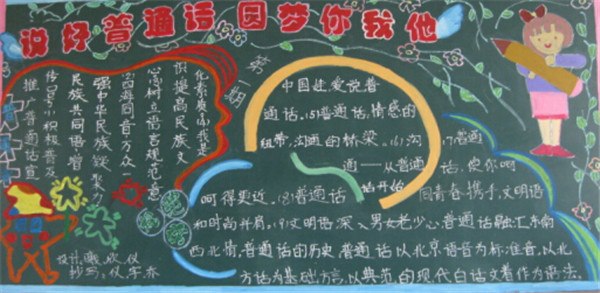 说好普通话 圆梦你我他
第一期
推广普通话宣
传口号(1)积极普及
民族共同语增
强中华民族凝聚力
(2)四海同音万众一
心(3)树立语言规范意
识提高民族文
化素质(4)我是
中国娃爱说普
通话。(5)普通话,情感的
纽带,沟通的桥梁。(6)沟
通——从普通话开始
(7)普通话,使你啊
呵得更近。(8)普通话 同青春携手,文明语
和时尚并肩。(9)文明语深入男女老少心普通话融汇东南
西北情,普通话的历史 普通话以北京语音为标准音,以北
方话为基础方言,以典范的现代白话文著作为语法。
设计:
抄写: